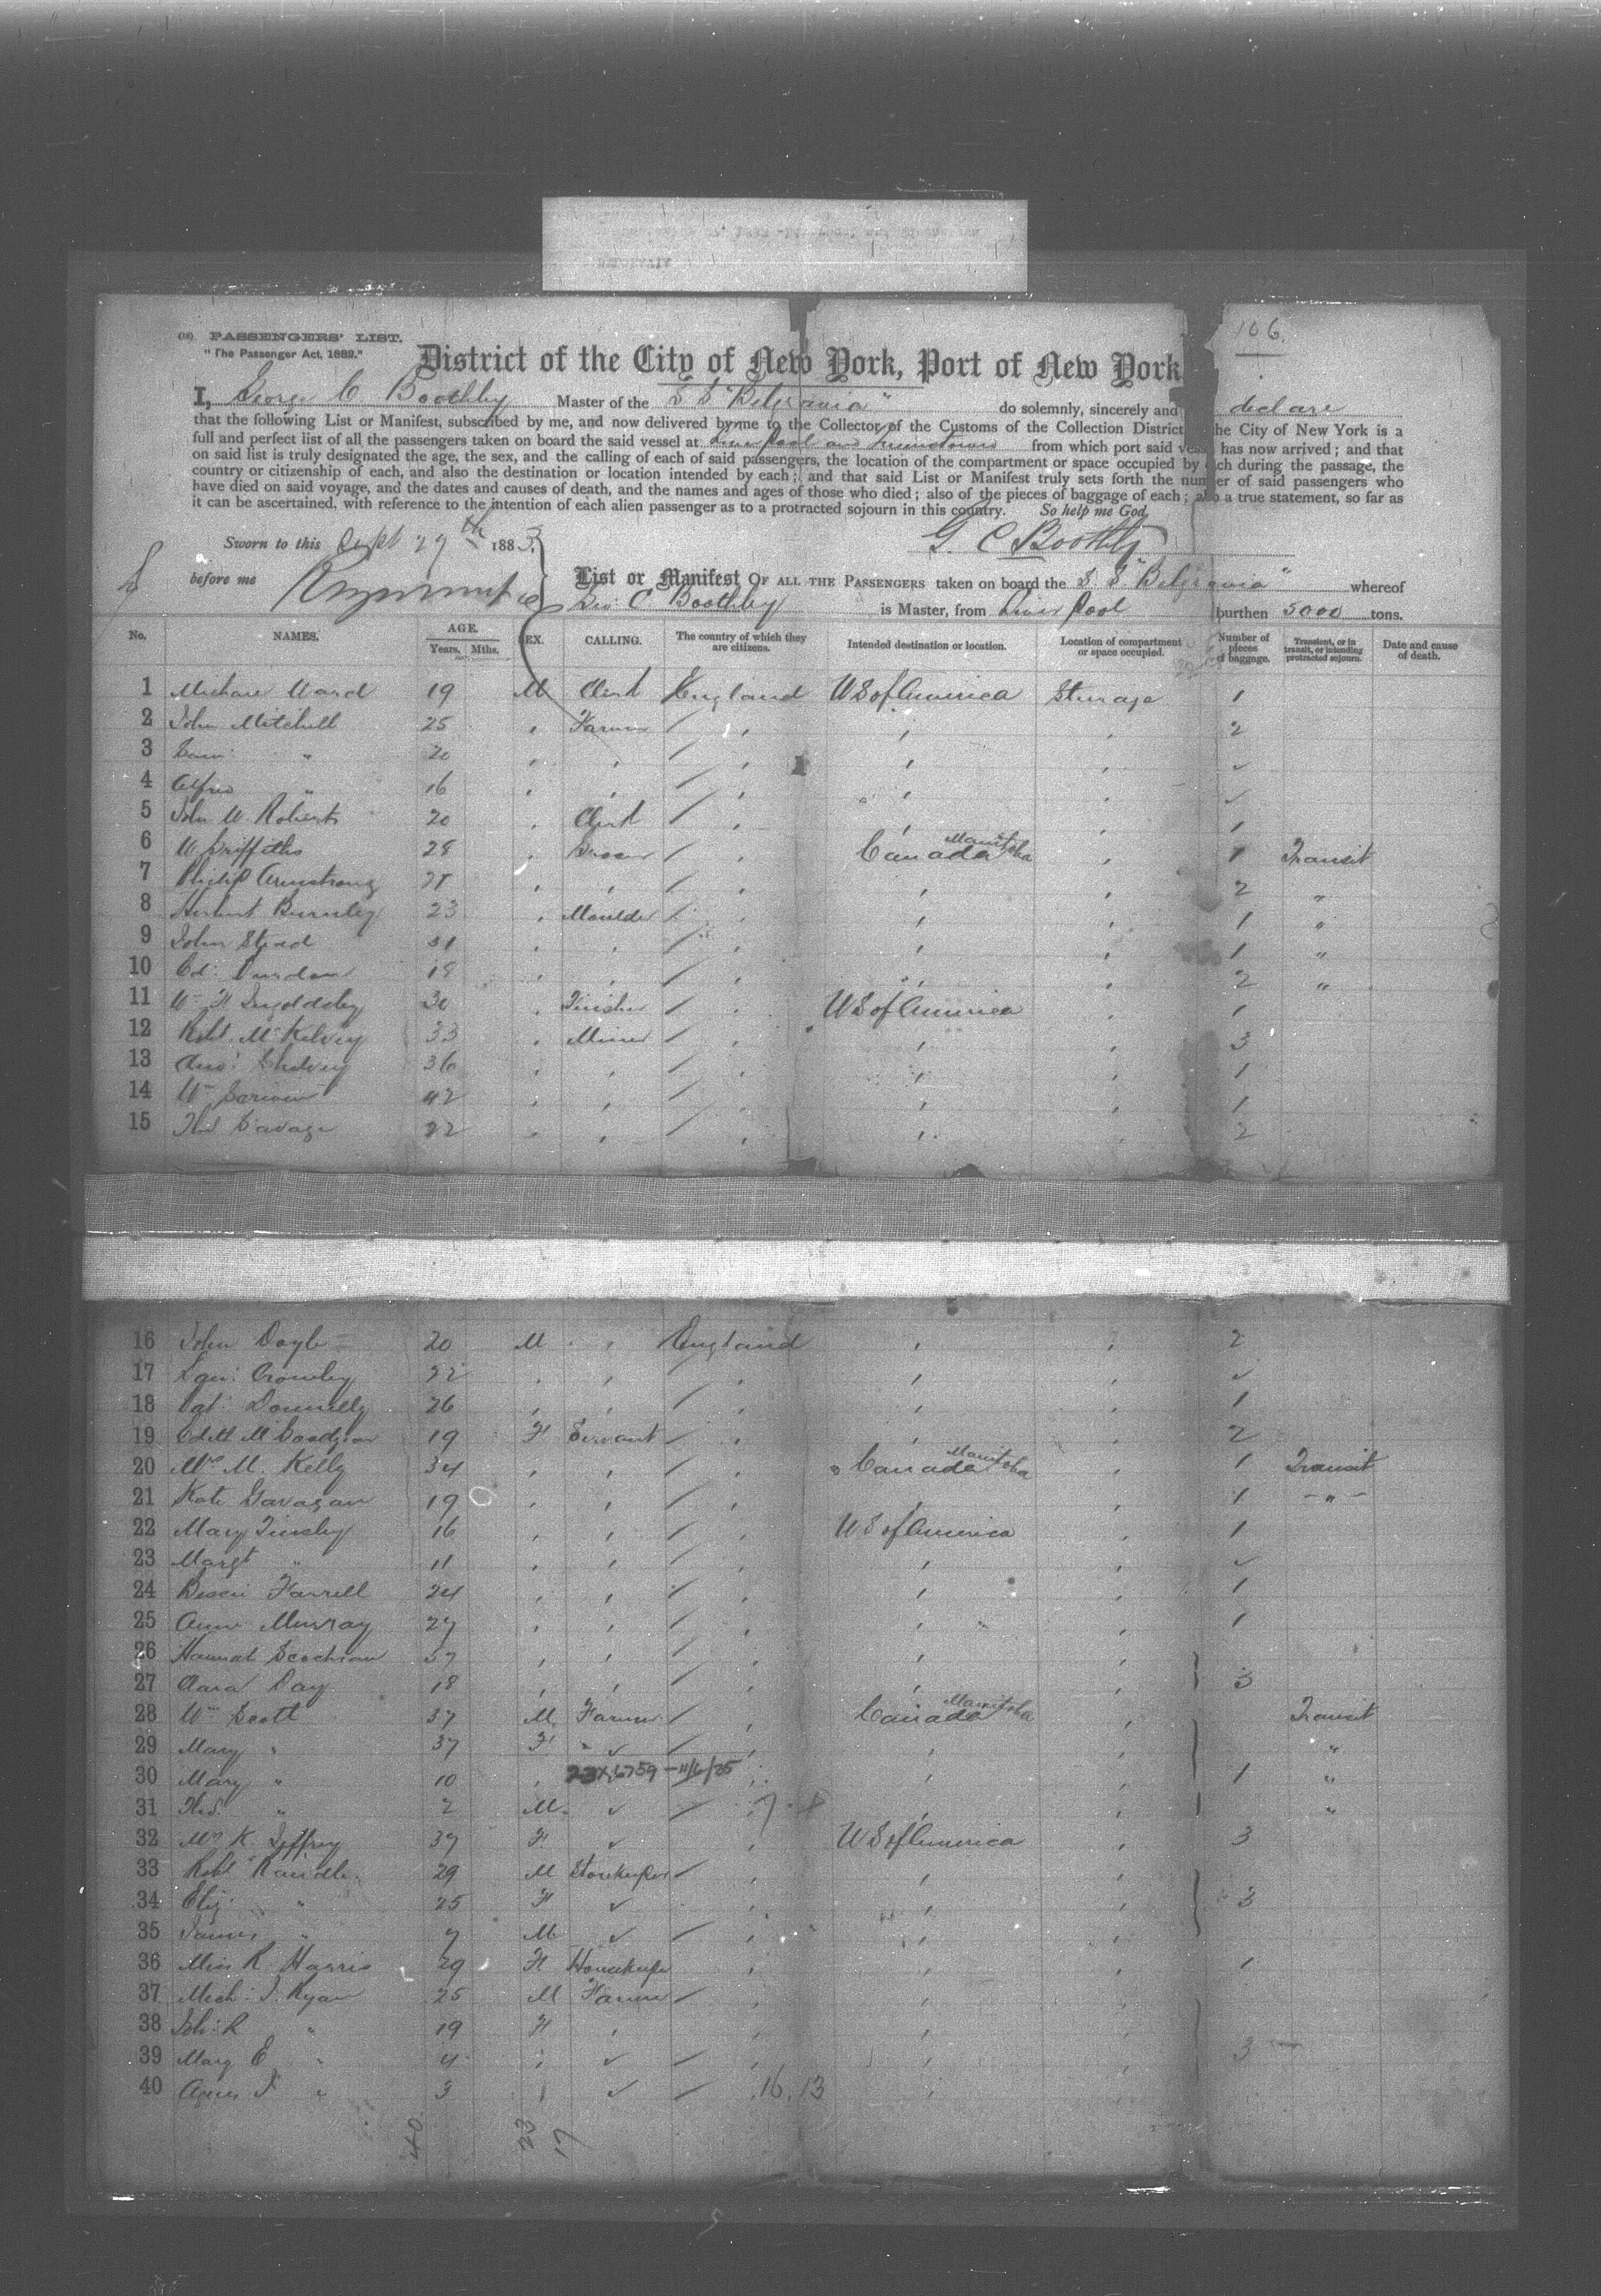 106.
(18) PASSENGERS' LIST.
"The Passenger Act, 1882."
District of the City of New York, Port of New York
I, George C Boothby Master of the S S "Belgravia" do solemnly, sincerely and declare
that the following List or Manifest, subscribed by me, and now delivered by me to the Collector of the Customs of the Collection District he City of New York is a
full and perfect list of all the passengers taken on board the said vessel at Liverpool and Queenstown from which port said vess has now arrived; and that
on said list is truly designated the age, the sex, and the calling of each of said passengers, the location of the compartment or space occupied by ch during the passage, the
country or citizenship of each, and also the destination or location intended by each; and that said List or Manifest truly sets forth the number of said passengers who
have died on said voyage, and the dates and causes of death, and the names and ages of those who died; also of the pieces of baggage of each; also a true statement, so far as
it can be ascertained, with reference to the intention of each alien passenger as to a protracted sojourn in this country. So help me God,
Sworn to this Sept 29th 1883. G. C Boothby
before me
List or Manifest OF ALL THE PASSENGERS taken on board the S. S. "Belgravia" whereof
Geo C Boothby is Master, from Liverpool burthen 5000 tons.
No. NAMES. AGE. Years. Mths. SEX. CALLING. The country of which they are citizens. Intended destination or location. Location of compartment or space occupied. Number of pieces of baggage. Transient, or in transit, or intending protracted sojourn. Date and cause of death.
1 Michael Ward 19 M Clerk England US of America Steerage 1
2 John Mitchell 25 " Farmer / " " " 2
3 Sam: " 20 " " / " " " ✓
4 Alfred " 16 " " / " " " ✓
5 John W. Roberts 20 " Clerk / " " " 1
6 W Griffiths 28 " Grocer / " Canada Manitoba " 1 Transit
7 Philip Armstrong " " / " " " 2 "
8 Herbert Burnley 23 " Moulder / " " " 1 "
9 John Stead " " / " " " 1 "
10 Ed: 18 " " / " " " 2 "
11 Wm H Ingoldsby 30 " Finisher / " US of America " 1
12 Robt. McKelvey 33 " Miner / " " " 3
13 36 " " / " " " 1
14 Wm Scriven 42 " " / " " " 1
15 Thos Savage 22 " " / " " " 2
16 John Doyle 20 M " England " " 2
17 Crowley 22 " " / " " " ✓
18 Pat: Donnelly 26 " " / " " " 1
19 Edith M 19 F Servant / " " " 2
20 Mrs M. Kelly 34 " " / " Canada Manitoba " 1 Transit
21 Kate Gavagan 19 " " / " " " 1 - " -
22 Mary Tinsley 16 " " / " US of America " 1
23 Margt " 11 " " / " " " ✓
24 Bessie Farrell 24 " " / " " " 1
25 Anne Murray 27 " " / " " " 1
26 Hannah " " / " " "
27 Clara Day 18 " " / " " " 3
28 Wm Scott 37 M Farmer / " Canada Manitoba " Transit
29 Mary " 37 F " ✓ / " " " "
30 Mary " 10 " 23X,6759 - 11/6/25 " " " 1 "
31 Thos. " 2 M ✓ / " " " "
32 Mrs K. Jeffrey 37 F ✓ " US of America " 3
33 Robt Randle 29 M Storekeeper / " " "
34 Eliz " 25 F ✓ " " " 3
35 James " 7 M ✓ / " " "
36 Miss R. Harris 29 F Housekeeper " " " 1
37 Mich: J. Ryan 25 M Farmer / " " "
38 R " 19 F " " " "
39 Mary E " 4 " ✓ / " " " 3
40 Agnes " 3 " ✓ / 16.13 " "
40 23 17